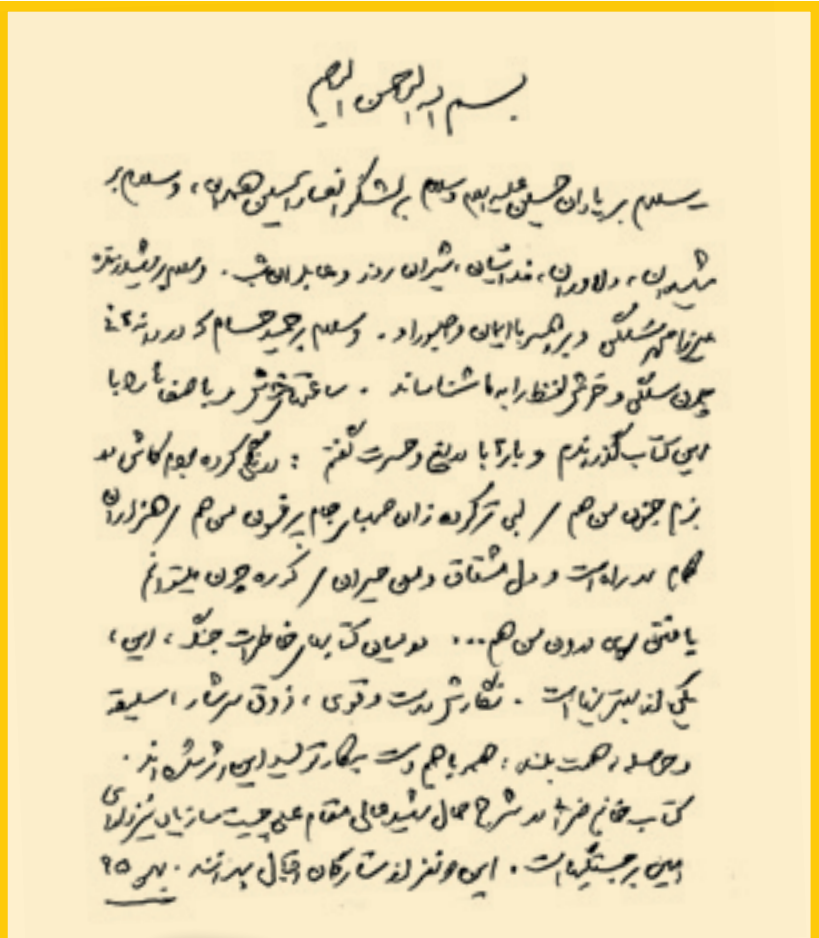 بسم الله الرحمن الرحیم
سلام بر یاران حسین علیه‌السلام وسلام بر لشگر انصارالحسین همدان، وسلام بر
شهیدان، دلاوران، فدائیان، شیران روز و عابدان شب. وسلام بر شهید زنده
میرزا محمد سلگی و بر همسر با ایمان و صبور او. وسلام بر حمید حسام که دردانه‌هائی
چون سلگی و خوش‌لفظ را به ما شناساند. ساعتهای خوش و با صفائی را با
این کتاب گذراندم و بارها با دریغ و حسرت گفتم: درنگی کرده بودم کاش در
بزم جنون من هم / لبی تر کرده زان صهبای جام پر فسون من هم / هزاران
کام در راه است و دل مشتاق و من حیران / که ره چون میتوانم
یافتن سوی درون من هم... در میان کتابهای خاطرات جنگ، این،
یکی از بهترینها است. نگارش درست و قوی، ذوق سرشار، سلیقه
و حوصله، همت بلند، همه با هم دست بکار تولید این اثر شده‌اند.
کتاب خانم ضرابی در شرح حال شهید عالی‌مقام علی چیت‌سازیان نیز دارای
همین برجستگیها است. این دو نفر از ستارگان اقبال بهره‌مند. بهمن ۹۵